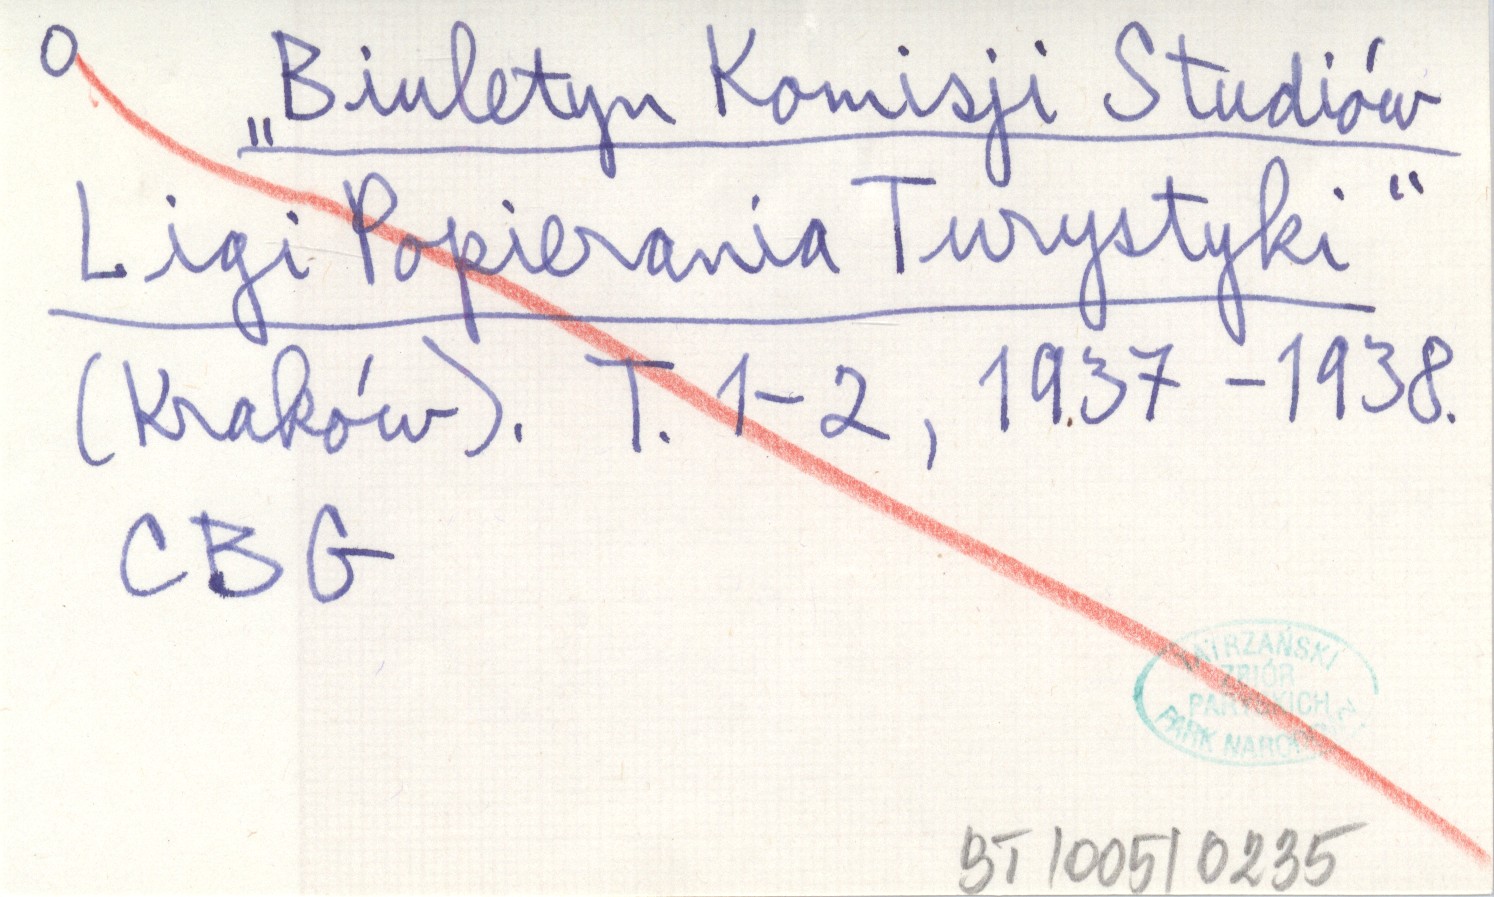 O
„Biuletyn Komisji Studiów
Ligi Popierania Turystyki“
(Kraków). T. 1-2, 1937-1938.
CBG
TATRZAŃSKI
ZBIÓR
PARYSKICH
PARK NARODOWY
BT/005/0235